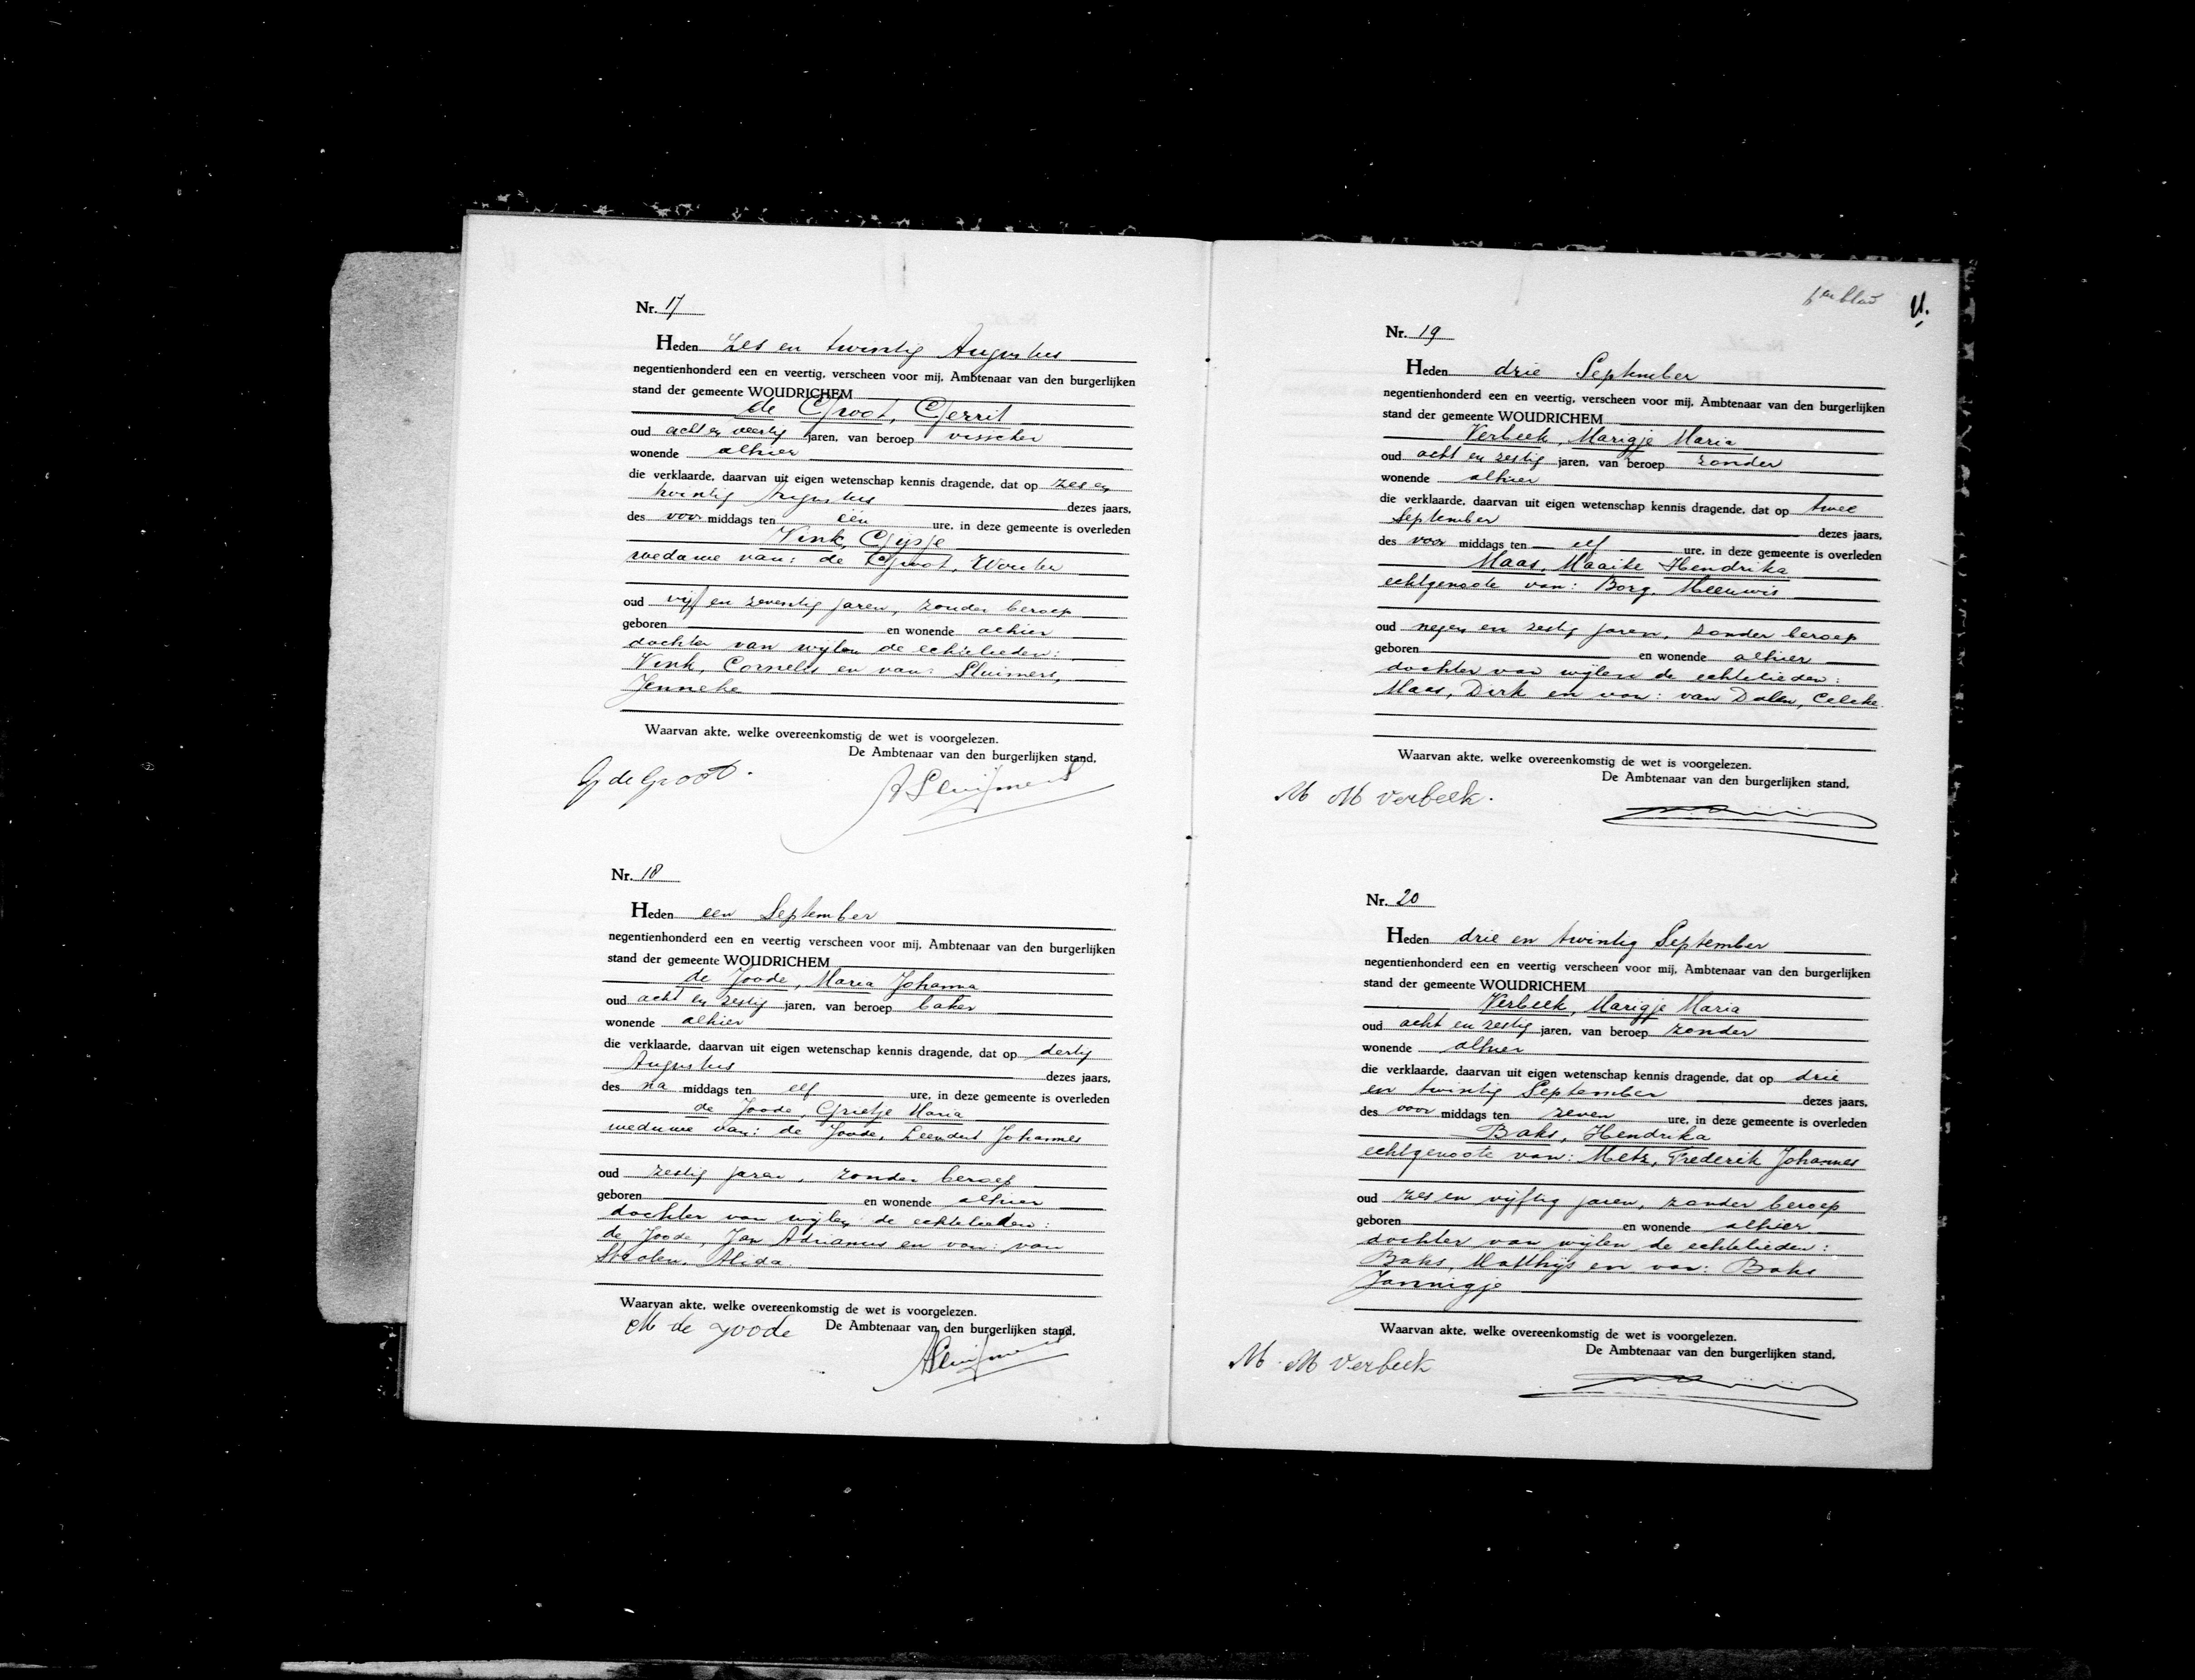 Nr. 17
Heden Zes en twintig Augustus
negentienhonderd een en veertig, verscheen voor mij, Ambtenaar van den burgerlijken
stand der gemeente WOUDRICHEM
de Groot, Gerrit
oud acht en veertig jaren, van beroep visscher
wonende alhier
die verklaarde, daarvan uit eigen wetenschap kennis dragende, dat op zes en
twintig Augustus dezes jaars,
des voor middags ten één ure, in deze gemeente is overleden
Vink, Gijsje
weduwe van: de Groot, Wouter
oud vijf en zeventig jaren, zonder beroep
geboren en wonende alhier
dochter van wijlen de echtelieden:
Vink, Cornelis en van: Sluimers,
Jenneke
Waarvan akte, welke overeenkomstig de wet is voorgelezen.
De Ambtenaar van den burgerlijken stand,
G de Groot.
Nr. 18
Heden een September
negentienhonderd een en veertig verscheen voor mij, Ambtenaar van den burgerlijken
stand der gemeente WOUDRICHEM
de Joode, Maria Johanna
oud acht en zestig jaren, van beroep baker
wonende alhier
die verklaarde, daarvan uit eigen wetenschap kennis dragende, dat op dertig
Augustus dezes jaars,
des na middags ten elf ure, in deze gemeente is overleden
de Joode, Grietje Maria
weduwe van: de Joode, Leendert Johannes
oud zestig jaren, zonder beroep
geboren en wonende alhier
dochter van wijlen de echtelieden:
de Joode, Jan Adrianus en van: van
Straalen, Alida
Waarvan akte, welke overeenkomstig de wet is voorgelezen.
M de Joode De Ambtenaar van den burgerlijken stand,
6de blad
Nr. 19
Heden drie September
negentienhonderd een en veertig, verscheen voor mij, Ambtenaar van den burgerlijken
stand der gemeente WOUDRICHEM
Verbeek, Marigje Maria
oud acht en zestig jaren, van beroep zonder
wonende alhier
die verklaarde, daarvan uit eigen wetenschap kennis dragende, dat op twee
September dezes jaars,
des voor middags ten elf ure, in deze gemeente is overleden
Maas, Maaike Hendrika
echtgenoote van: Borg, Meeuwis
oud negen en zestig jaren, zonder beroep
geboren en wonende alhier
dochter van wijlen de echtelieden:
Maas, Dirk en van: van Dalen, Celeke
Waarvan akte, welke overeenkomstig de wet is voorgelezen.
De Ambtenaar van den burgerlijken stand,
M M Verbeek.
Nr. 20
Heden drie en twintig September
negentienhonderd een en veertig verscheen voor mij, Ambtenaar van den burgerlijken
stand der gemeente WOUDRICHEM
Verbeek, Marigje Maria
oud acht en zestig jaren, van beroep zonder
wonende alhier
die verklaarde, daarvan uit eigen wetenschap kennis dragende, dat op drie
en twintig September dezes jaars,
des voor middags ten zeven ure, in deze gemeente is overleden
Baks, Hendrika
echtgenoote van: Metz, Frederik Johannes
oud zes en vijftig jaren, zonder beroep
geboren en wonende alhier
dochter van wijlen de echtelieden:
Baks, Matthijs en van: Baks
Jannigje
Waarvan akte, welke overeenkomstig de wet is voorgelezen.
De Ambtenaar van den burgerlijken stand,
M. M Verbeek